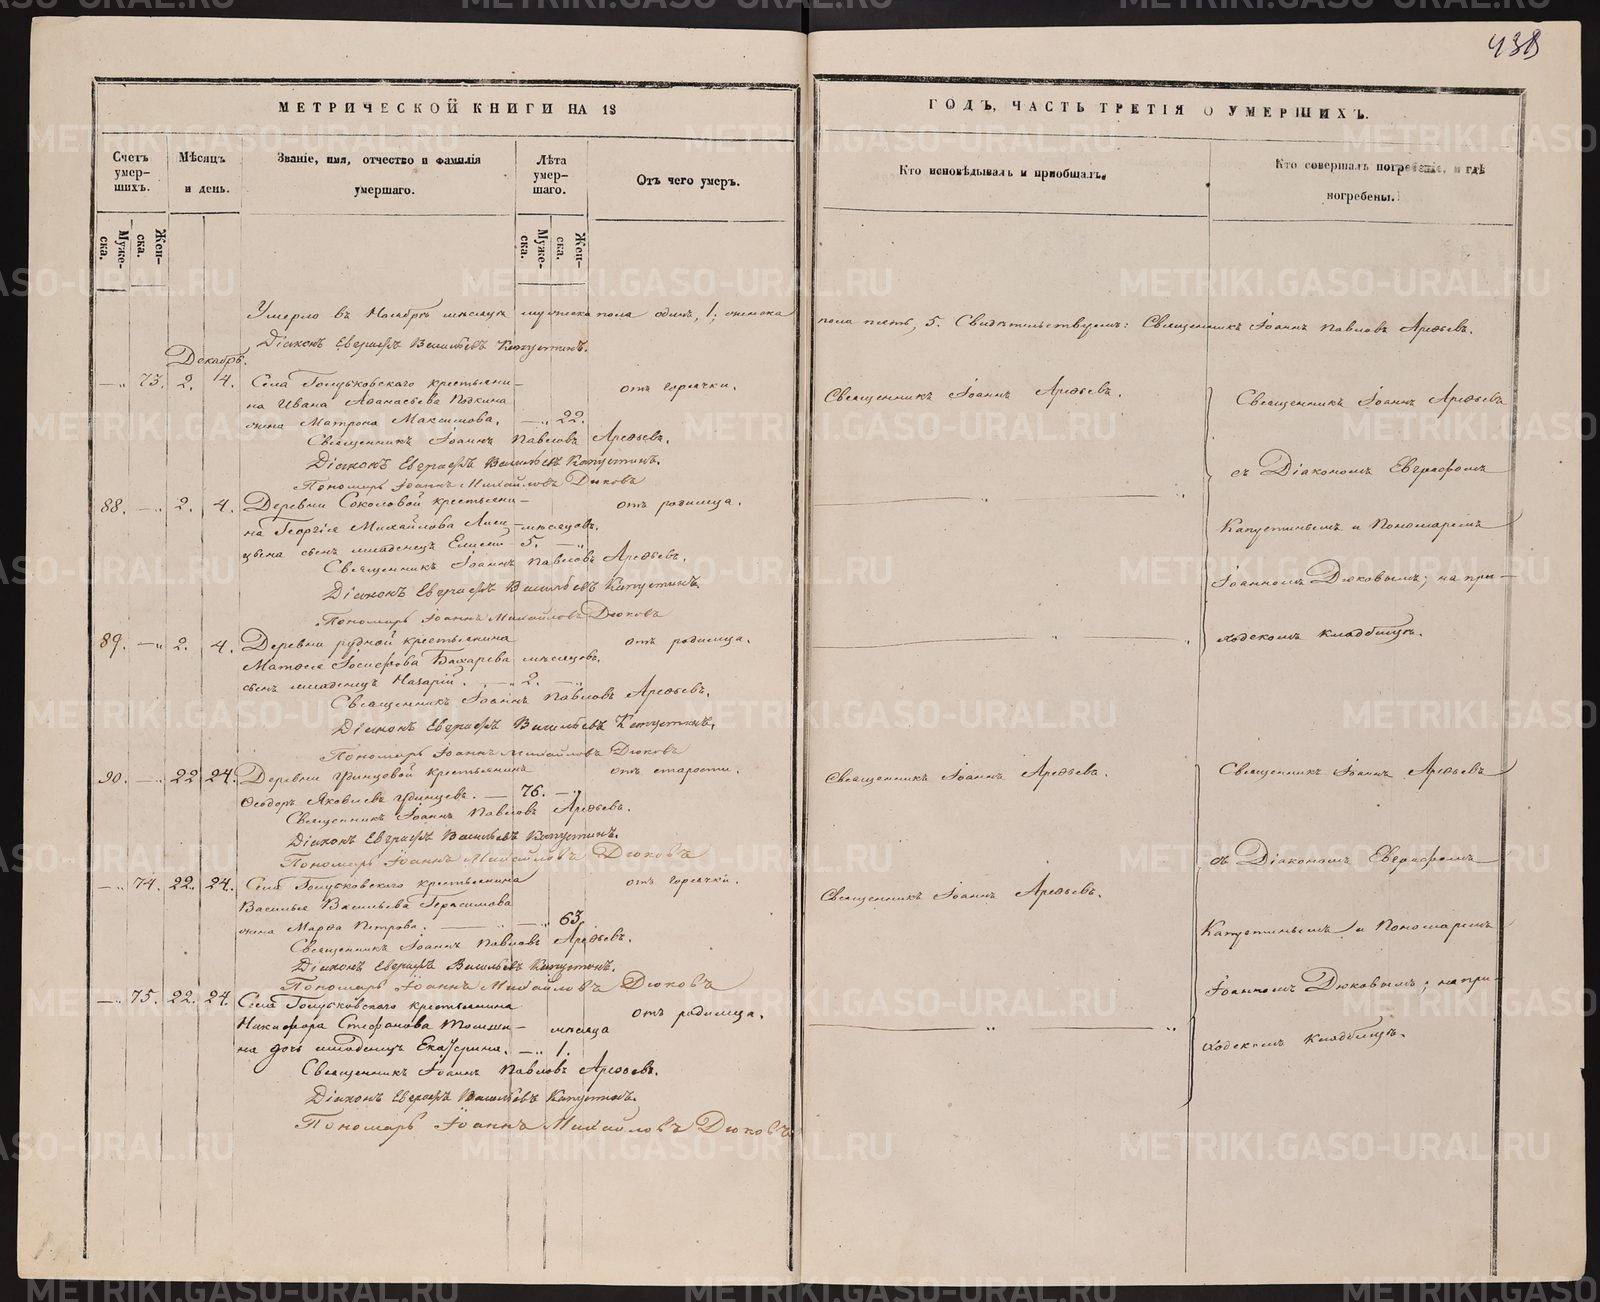 438
МЕТРИЧЕСКОЙ КНИГИ НА 18
ГОДЪ, ЧАСТЬ ТРЕТІЯ О УМЕРШИХЪ.
Счетъ умер-
шихъ.
Мѣсяцъ
и день.
Званіе, имя, отчество и фамилія
умершаго.
Лѣта
умер-
шаго.
Отъ чего умеръ.
Кто исповѣдывалъ и пріобщалъ.
Кто совершалъ погребеніе, и гдѣ
погребены.
Муже-
ска.
Жен-
ска.
Муже-
ска.
Жен-
ска.
Умерло въ Ноябрѣ мѣсяцѣ мужеска пола одинъ, 1, женска
пола пять, 5. Свидѣтельствуемъ: Священникъ Іоаннъ Павловъ Арефьевъ.
Діаконъ Евграфъ Васильевъ Капустинъ.
Декабрь.
— „ 73. 2. 4. Села Голубковскаго крестьяни-
на Ивана Аѳанасьева
жена Матрона Максимова. — „ 22.
отъ горячки.
Священникъ Іоаннъ Арефьевъ.
Священникъ Іоаннъ Павловъ Арефьевъ.
Діаконъ Евграфъ Васильевъ Капустинъ.
Пономарь Іоаннъ Михайловъ Дюковъ
88. — „ 2. 4. Деревни Соколовой крестьяни-
на Георгія Михайлова Лиси-
цына сынъ младенецъ Елисей 5. — „
мѣсяцовъ.
отъ родимца.
Священникъ Іоаннъ Павловъ Арефьевъ.
Діаконъ Евграфъ Васильевъ Капустинъ.
Пономарь Іоаннъ Михайловъ Дюковъ
89. — „ 2. 4. Деревни Рудной крестьянина
Матѳея Іосифова Бахарева мѣсяцовъ.
сынъ младенецъ Назарій. — „ 2. — „
отъ родимца.
Священникъ Іоаннъ Павловъ Арефьевъ.
Діаконъ Евграфъ Васильевъ Капустинъ.
Пономарь Іоаннъ Михайловъ Дюковъ
Священникъ Іоаннъ Арефьевъ
съ Діакономъ Евграфомъ
Капустинымъ и Пономаремъ
Іоанномъ Дюковымъ; на при-
ходскомъ кладбищѣ.
90. — „ 22. 24. Деревни Удинцовой крестьянинъ
Ѳеодоръ Яковлевъ Удинцевъ. — 76. — „
отъ старости.
Священникъ Іоаннъ Арефьевъ.
Священникъ Іоаннъ Павловъ Арефьевъ.
Діаконъ Евграфъ Васильевъ Капустинъ.
Пономарь Іоаннъ Михайловъ Дюковъ
— „ 74. 22. 24. Села Голубковскаго крестьянина
Василья Васильева Герасимова
жена Марѳа Петрова. — „ — „ 63.
отъ горячки.
Священникъ Іоаннъ Арефьевъ.
Священникъ Іоаннъ Павловъ Арефьевъ.
Діаконъ Евграфъ Васильевъ Капустинъ.
Пономарь Іоаннъ Михайловъ Дюковъ
— „ 75. 22. 24. Села Голубковскаго крестьянина
Никифора Стефанова Томши-
на дочь младенецъ Екатерина. — „ 1.
мѣсяца
отъ родимца.
Священникъ Іоаннъ Павловъ Арефьевъ.
Діаконъ Евграфъ Васильевъ Капустинъ.
Пономарь Іоаннъ Михайловъ Дюковъ
Священникъ Іоаннъ Арефьевъ
съ Діакономъ Евграфомъ
Капустинымъ и Пономаремъ
Іоанномъ Дюковымъ; на при-
ходскомъ кладбищѣ.
METRIKI.GASO-URAL.RU